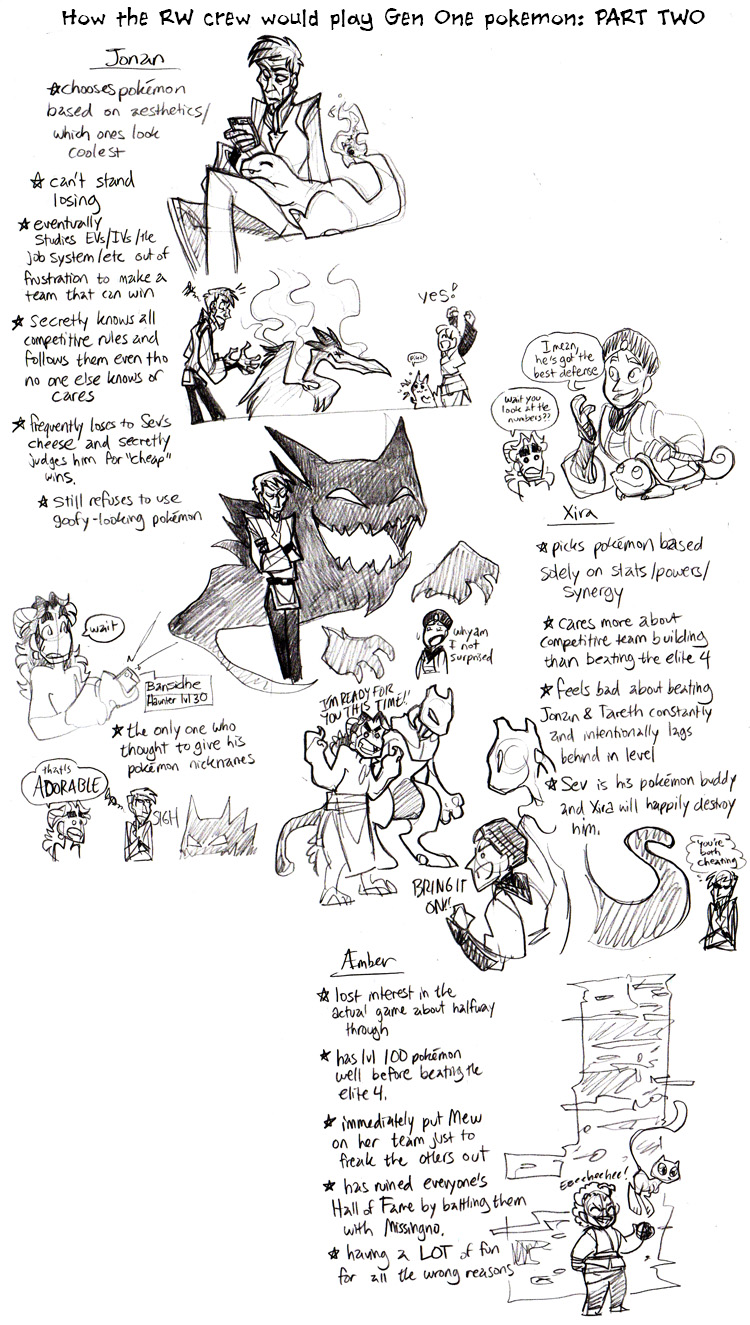 How the RW crew would play Gen One pokemon: PART TWO
Jonan
☆chooses pokémon
based on aesthetics/
which ones look
coolest
☆ can't stand
losing
★ eventually
studies EVs/IVs/the
job system/etc out of
frustration to make a
team that can win
★ Secretly knows all
competitive rules and
follows them even tho
no one else knows or
cares
★ frequently loses to Sev's
cheese and secretly
judges him for "cheap"
wins.
★ Still refuses to use
goofy-looking pokémon
yes!
wait
Bansidhe
Haunter lvl 30
★ the only one who
thought to give his
pokémon nicknames
that's
ADORABLE
SIGH
why am
I not
surprised
I'M READY FOR
YOU THIS TIME!!
BRING IT
ON!!
I mean,
he's got the
best defense
wait you
look at the
numbers??
Xira
★ picks pokémon based
solely on stats/powers/
synergy
★ cares more about
competitive team building
than beating the elite 4
★ feels bad about beating
Jonan & Tareth constantly
and intentionally lags
behind in level
★ Sev is his pokémon buddy
and Xira will happily destroy
him.
you're
both
cheating
Æmber
★ lost interest in the
actual game about halfway
through
★ has lvl 100 pokémon
well before beating the
elite 4.
★ immediately put Mew
on her team just to
freak the others out
★ has ruined everyone's
Hall of Fame by battling them
with Missingno.
★ having a LOT of fun
for all the wrong reasons
Eeeeheehee!